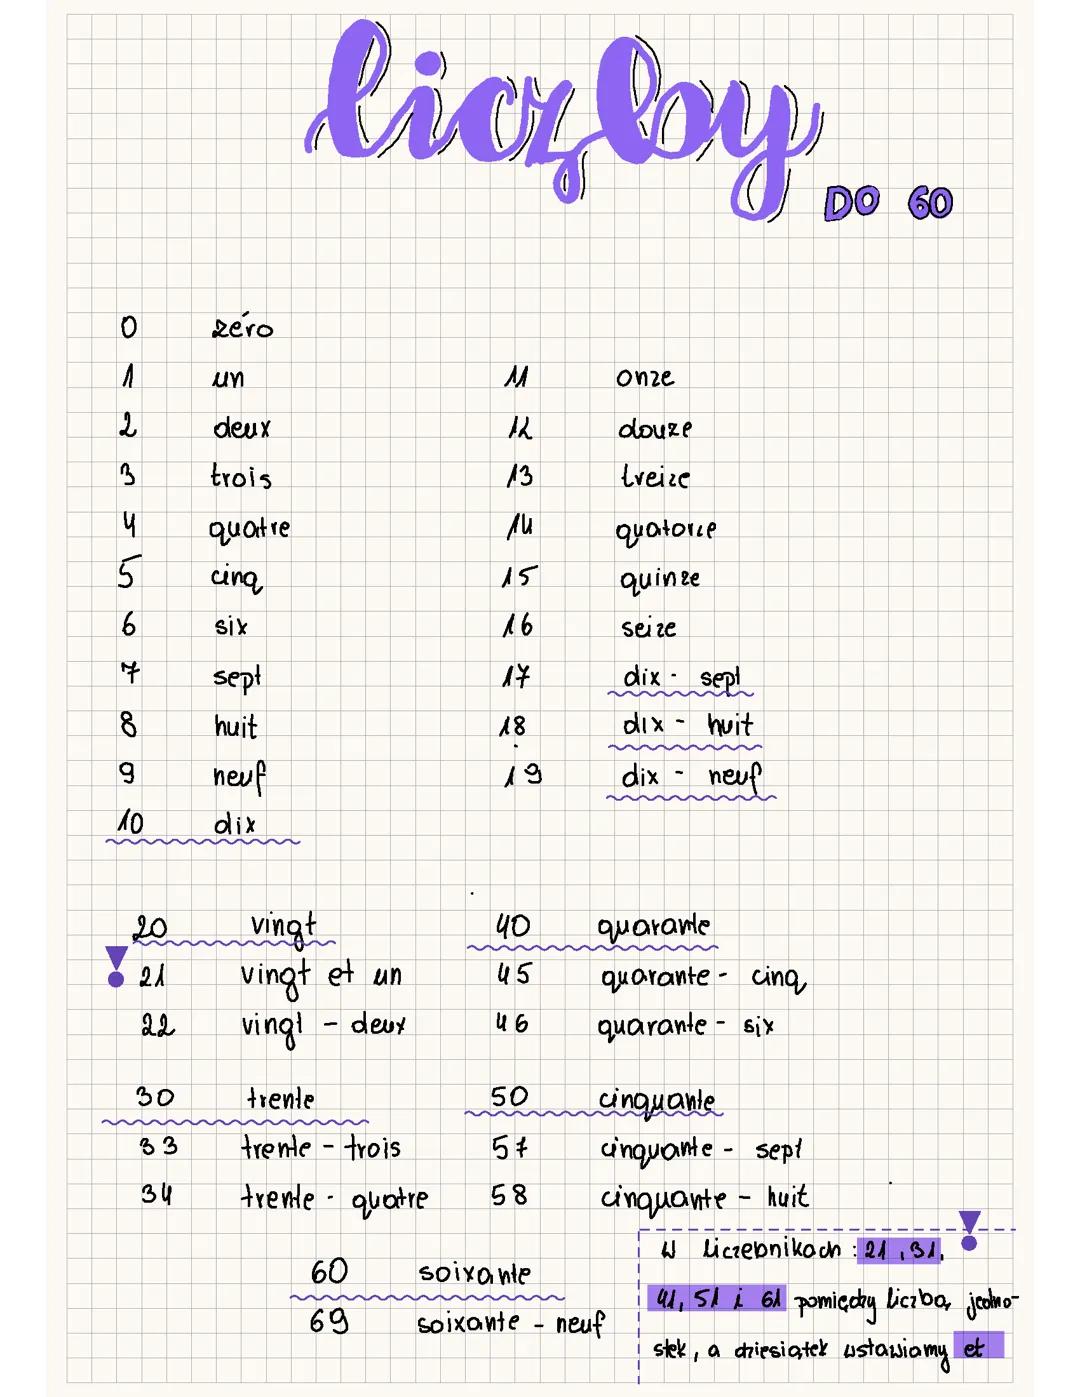 liczby
DO 60
0 zéro
1 un 11 onze
2 deux 12 douze
3 trois 13 treize
4 quatre 14 quatorze
5 cinq 15 quinze
6 six 16 seize
7 sept 17 dix - sept
8 huit 18 dix - huit
9 neuf 19 dix - neuf
10 dix
20 vingt 40 quarante
21 vingt et un 45 quarante - cinq
22 vingt - deux 46 quarante - six
30 trente 50 cinquante
33 trente - trois 57 cinquante - sept
34 trente - quatre 58 cinquante - huit
60 soixante
69 soixante - neuf
W liczebnikach : 21, 31,
41, 51 i 61 pomiędzy liczbą jedno-
stek, a dziesiątek wstawiamy et